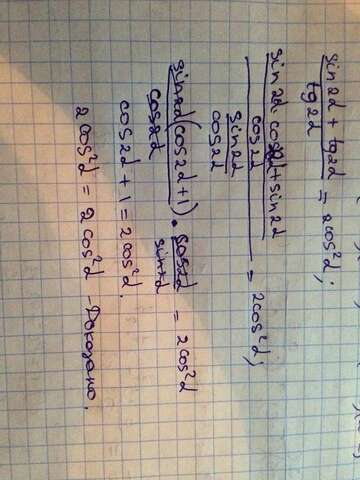 (sin2α + tg2α)/tg2α = 2cos²α;
((sin2α · cos2α + sin2α)/cos2α)/(sin2α/cos2α) = 2cos²α;
sin2α(cos2α+1)/cos2α · cos2α/sin2α = 2cos²α
cos2α + 1 = 2cos²α.
2cos²α = 2cos²α – Доказано.